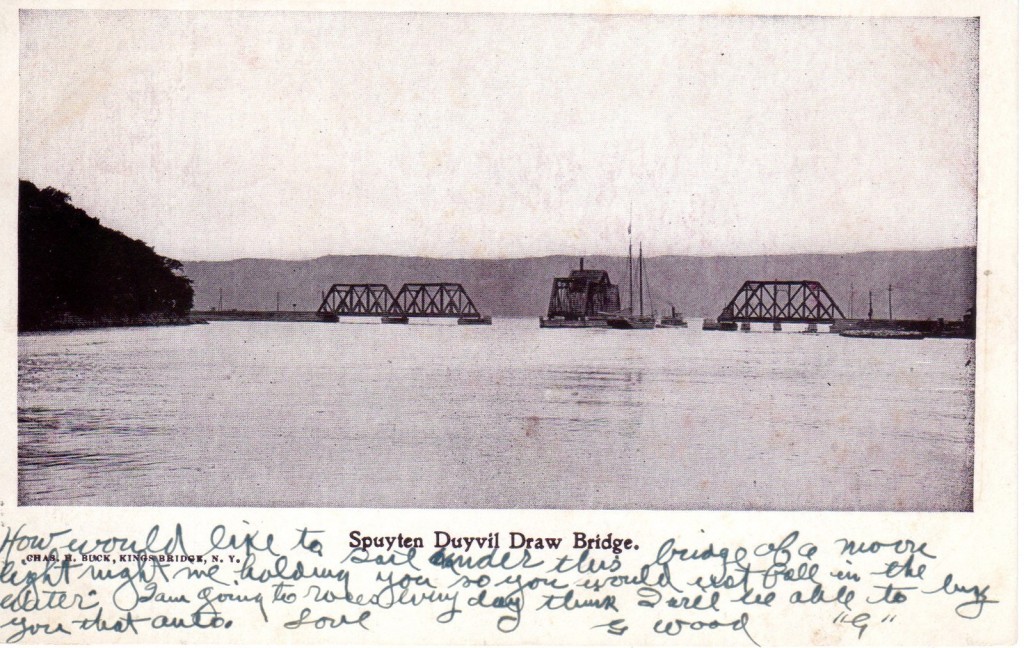 Spuyten Duyvil Draw Bridge.
CHAS. H. BUCK, KINGSBRIDGE, N. Y.
How would like to sail under this bridge of a moon
light night me holding you so you would not fall in the
water. I am going to races every day think I will be able to buy
you that auto. Love G Wood "G"